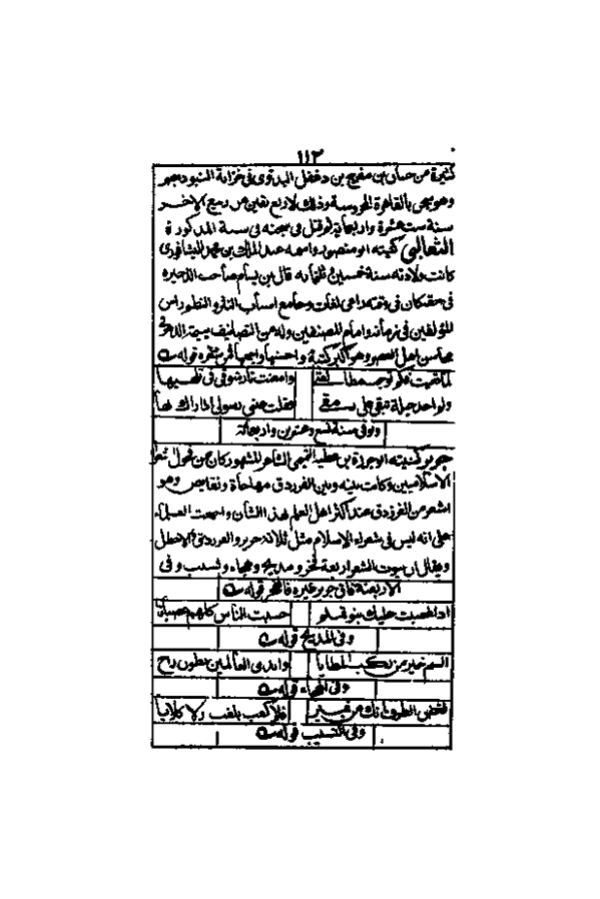 ١١٢
كثيرة من حسان بن مفرج بن دغفل البدوى فى خزانة البنود بمصر
وهو يجى بالقاهرة المحروسة وذلك لاربع بقين من ربيع الاخر
سنة ست عشرة واربعماية ثم قتل فى سجنه فى سنة المذكورة
الثعالبى كنيته ابو منصور واسمه عبد الملك بن محمد النيسابورى
كانت ولادته سنة خمسين وثلثمايه قال بن بسام صاحب الذخيره
فى حقه كان فى وقته راعى لغات وجامع اسباب النثر والنظم راس
المؤلفين فى زمانه وامام المصنفين وله من التصانيف يتيمة الدهر فى
محاسن اهل العصر وهو اكبر كتبه واحسنها واجمعها فمن شعره قوله
لما بعثت فلم توجب مطالعتى
وامعنت نار شوقى فى تلهبها
ولم اجد حيلة تبقى على رمقى
قبلت عينى رسولى اذ راك بها
وتوفى سنة تسع وعشرين واربعمائة
جرير كنيته ابو حرزة بن عطية التميمى الشاعر المشهور كان من فحول شعرا
الاسلاميين وكانت بينه وبين الفرزدق مهاجاة ونقايض وهو
اشعر من الفرزدق عند اكثر اهل العلم بهذا الشأن واجمعت العلماء
على انه ليس فى شعراء الاسلام مثل ثلاثة جرير والفرزدق والاخطل
ويقال ان بيوت الشعر اربعة فخر ومديح وهجاء ونسيب وفى
الاربعة فاق جرير غيره فالفخر قوله
اذا غضبت عليك بنو تميم
حسبت الناس كلهم غضبانا
وفى المديح قوله
الستم خير من ركب المطايا
واندى العالمين بطون راح
وفى الهجاء قوله
فغض الطرف انك من نمير
فلا كعبا بلغت ولا كلابا
وفى النسيب قوله